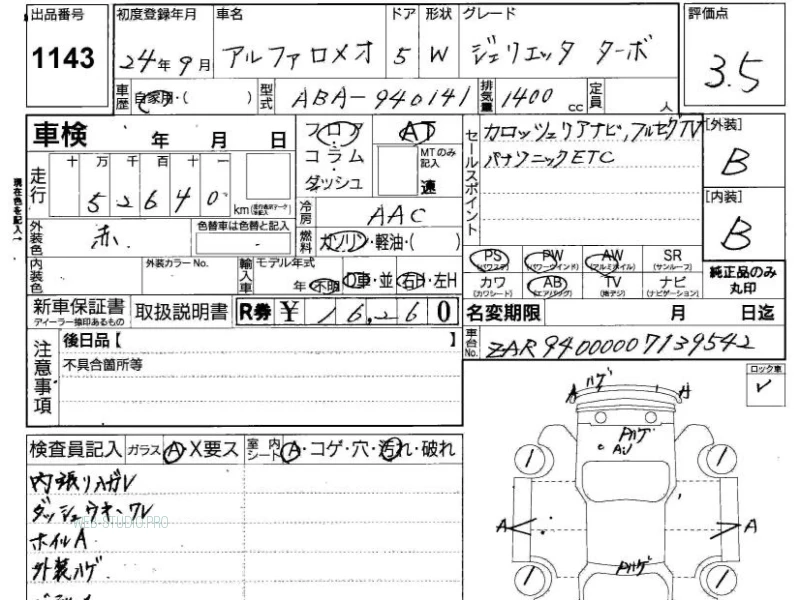 出品番号 初度登録年月 車名 ドア 形状 グレード 評価点
1143 24年9月 アルファロメオ 5 W ジュリエッタ ターボ 3.5
車歴 自家用・( ) 型式 ABA-940141 排気量 1400cc 定員 人
車検 年 月 日 フロア AT セールスポイント カロッツェリアナビ,フルセグTV [外装]
コラム・ダッシュ MTのみ記入 速 パナソニックETC B
現在色を記入→ 走行 十 万 千 百 十 一
52640 km
冷房 AAC [内装]
外装色 赤 色替車は色替と記入 燃料 ガソリン・軽油・( ) B
内装色 外装カラーNo. 輸入車 モデル年式 年 不明 D車・並 右H・左H
PS (パワステ) PW (パワーウインド) AW (アルミホイル) SR (サンルーフ)
カワ (カワシート) AB (エアバッグ) TV ナビ (ナビゲーション)
純正品のみ丸印
新車保証書 ディーラー捺印あるもの 取扱説明書 R券 ¥ 16,260 名変期限 月 日迄
注意事項 後日品【 】 車台No. ZAR94000007139542
不具合箇所等
ロック車
検査員記入 ガラス A・X要ス 室内シート A・コゲ・穴・汚れ・破れ
内張リハガレ
ダッシュウキ・ワレ
WEB-STUDIO.PRO
ホイルA
外装ハゲ
A ハゲ A
Pハゲ
A
A A
Pハゲ